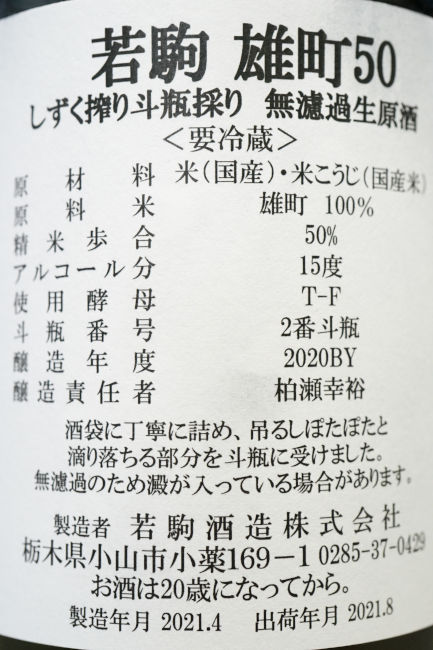 若駒 雄町50
しずく搾り斗瓶採り 無濾過生原酒
＜要冷蔵＞
原材料 米（国産）・米こうじ（国産米）
原料米 雄町 100％
精米歩合 50％
アルコール分 15度
使用酵母 T-F
斗瓶番号 2番斗瓶
醸造年度 2020BY
醸造責任者 柏瀬幸裕
酒袋に丁寧に詰め、吊るしぽたぽたと
滴り落ちる部分を斗瓶に受けました。
無濾過のため澱が入っている場合があります。
製造者 若駒酒造株式会社
栃木県小山市小薬169－1 0285-37-0429
お酒は20歳になってから。
製造年月 2021.4 出荷年月 2021.8